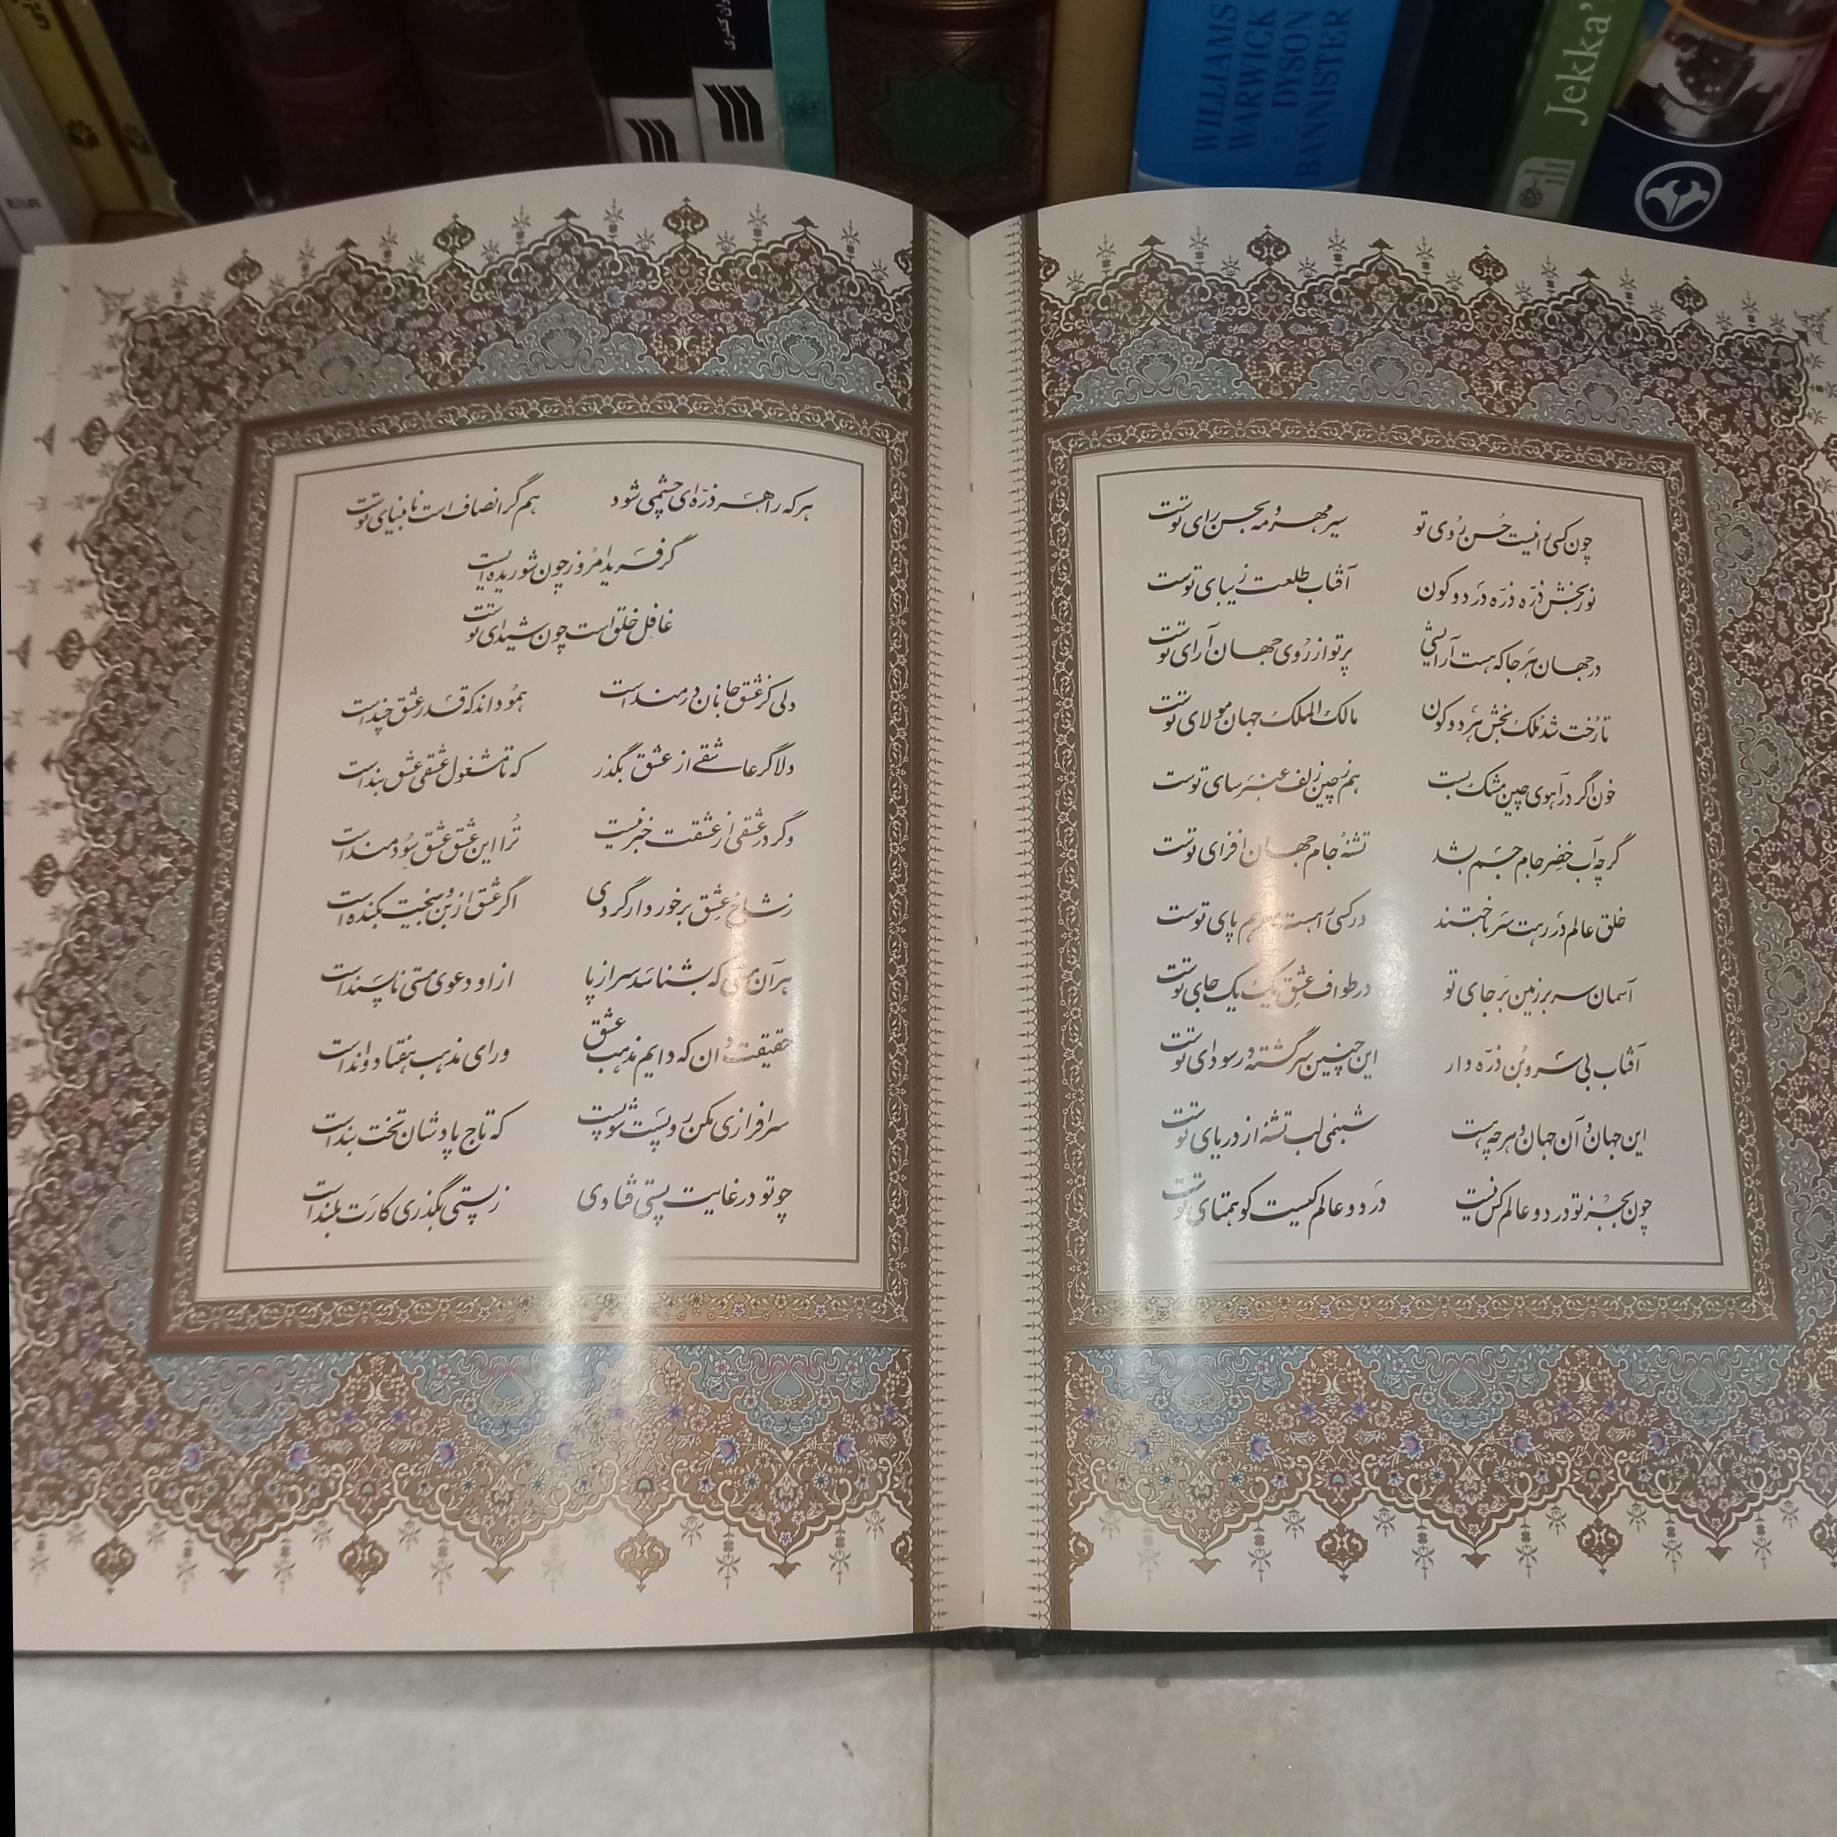 WILLIAMS
WARWICK
DYSON
BANNISTER
Jekka's
چون کسی را نیست حسن روی تو
سیر مهر و مه بحسن رای توست
نوربخش ذره ذره در دو کون
آفتاب طلعت زیبای توست
در جهان هر جا که هست آرایشی
پرتو از روی جهان آرای توست
تا رخت شد ملک بخش هر دو کون
مالک الملک جهان مولای توست
خون اگر در آهوی چین مشک بست
هم ز چین زلف عنبرسای توست
گرچه آب خضر جام جم بشد
تشنهٔ جام جهان افزای توست
خلق عالم در رهت سر باختند
در کسی را هست هم پای توست
آسمان سر بر زمین بر جای تو
در طواف عشق یک یک جای توست
آفتاب بی سر و بن ذره وار
این چنین سرگشته در سودای توست
این جهان و آن جهان و هرچه هست
شبنمی لب تشنه از دریای توست
چون بجز تو در دو عالم کس نیست
در دو عالم کیست کو همتای توست
هر که را هر ذره‌ای چشمی شود
هم گر انصاف است نابینای توست
گر فرید امروز چون شوریده ایست
غافل خلق است چون شیدای توست
دلی کز عشق جانان دردمند است
همو داند که قدر عشق چند است
دلا گر عاشقی از عشق بگذر
که تا مشغول عشقی عشق بند است
وگر در عشقی از عشقت خبر نیست
ترا این عشق عشق سودمند است
ز شاخ عشق برخوردار گردی
اگر عشق از بن و بیخت بکنده است
هر آن مستی که بشناسد سر از پا
ازو دعوی مستی ناپسند است
حقیقت دان که دایم مذهب عشق
ورای مذهب هفتاد و اند است
سرافرازی مکن رو پست شو پست
که تاج پادشان تخت بند است
چو تو در غایت پستی فتادی
ز پستی بگذری کارت بلند است